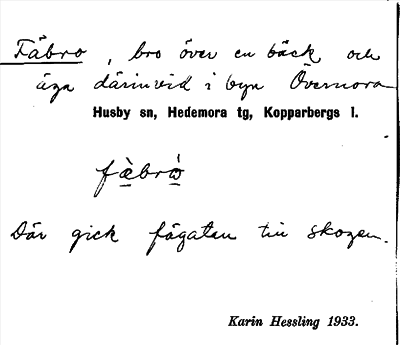 Fäbro, bro över en bäck och
äga därinvid i byn Övernora
Husby sn, Hedemora tg, Kopparbergs l.
fä̀brò
Där gick fägatan till skogen.
Karin Hessling 1933.